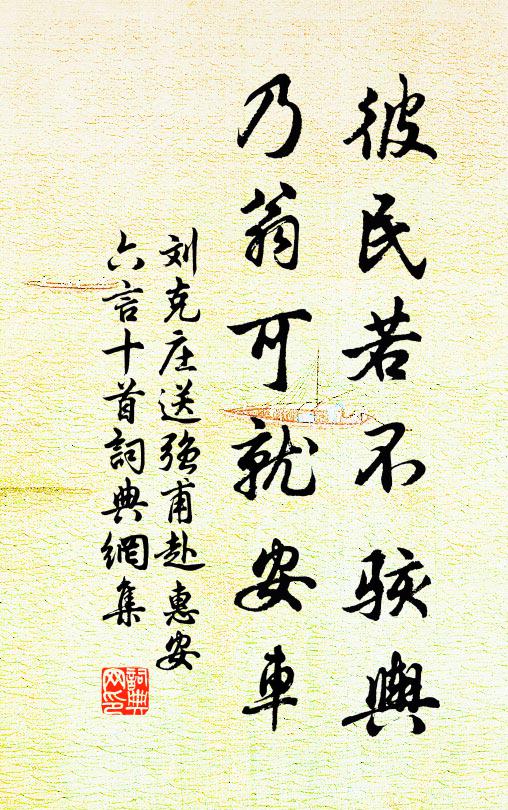 彼民若不駭輿
乃翁可就安車
刘克庄送强甫赴惠安
六言十首詞典網集
詞典网印